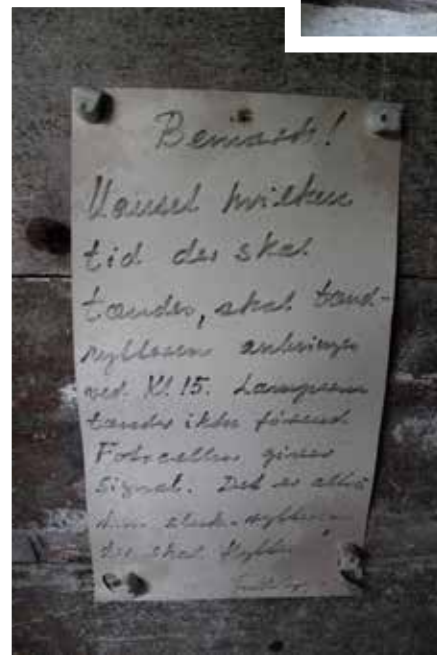 Bemærk!
Uanset hvilken
tid der skal
tændes, skal tænd-
rytteren anbringes
ved Kl. 15. Lamperne
tændes ikke førend
Fotocellen giver
Signal. Det er altså
kun sluk-rytteren
der skal flyttes